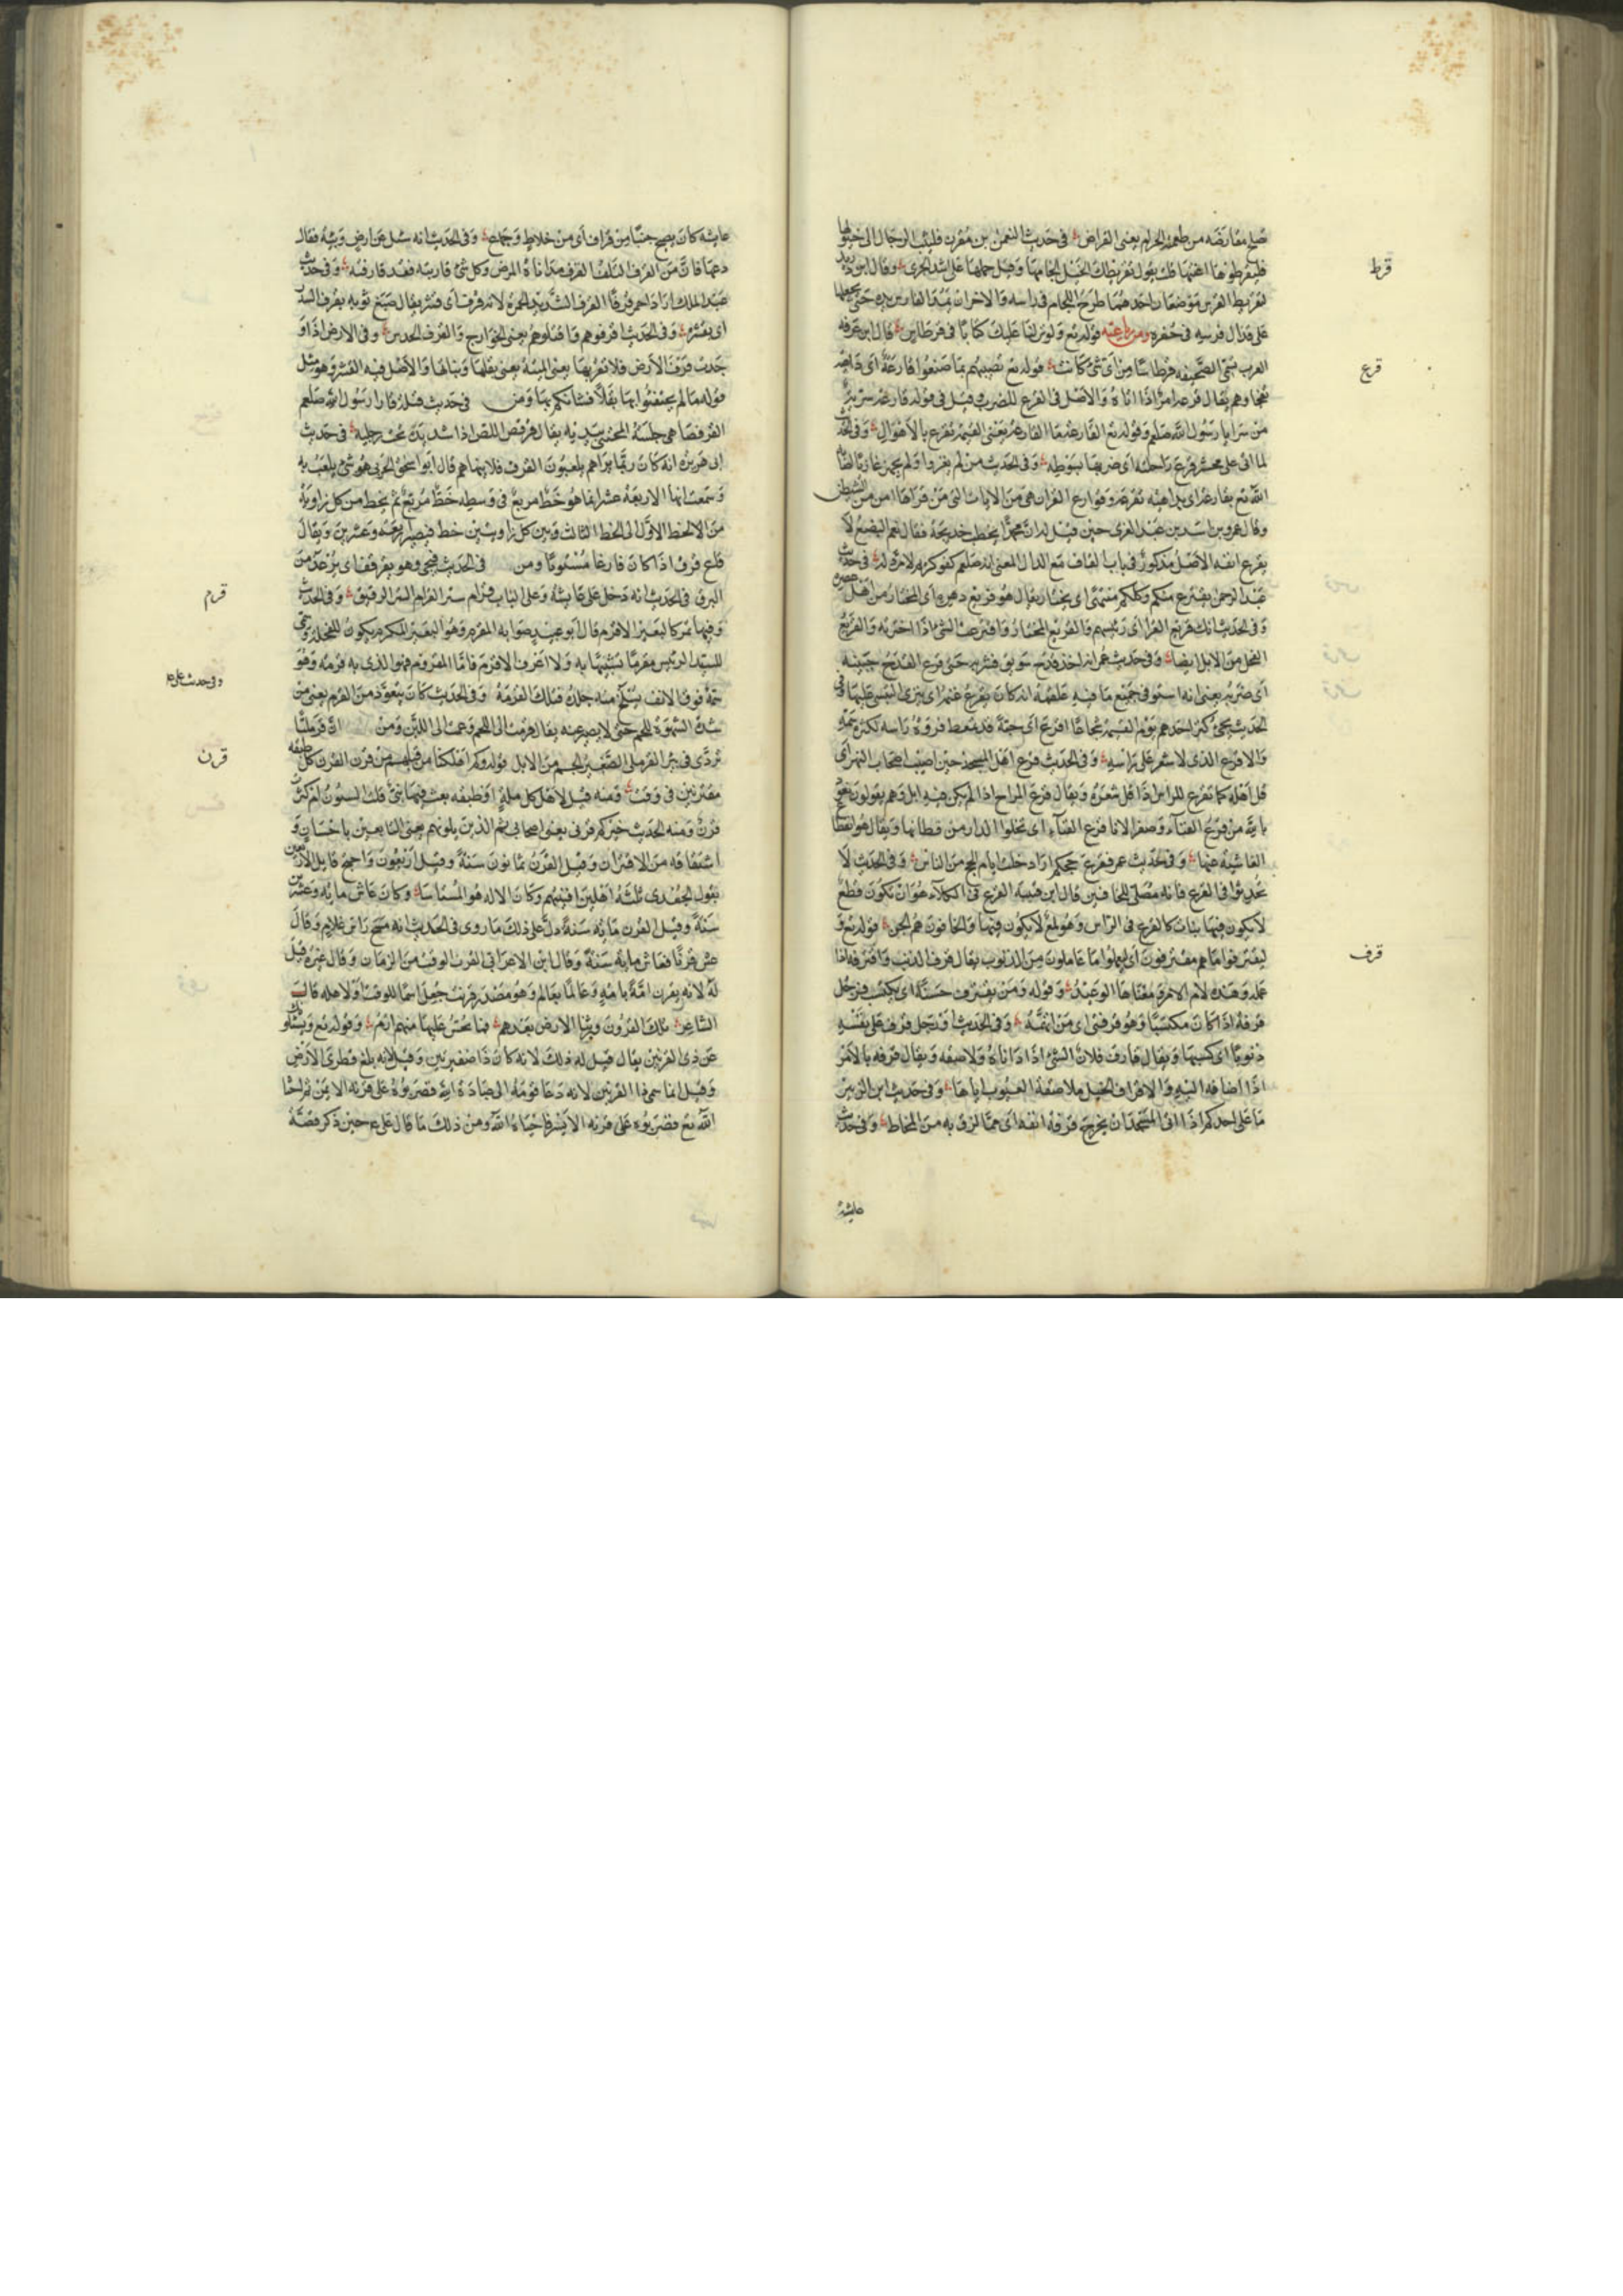 صلح مقارضة من طعمة الحرام يعنى القراض في حديث النعمن بن مقرن فليثب الرجال الى خيولها
فليقرطوها اعنتها قلت يقول تقريطك الخيل الجامها وقيل حملها على اشد الجرى وقال ابو دريد
لتقريط الفرس موضعان احدهما طرح اللجام فى راسه والاخر ان تمد الفارس يده حتى يجعلها
على قذال فرسه فى حضره ومن باعيته قوله تع ولو نزلنا عليك كتابا فى قرطاس قال ابن عرفة
العرب تسمى الصحيفة قرطاسا من اى شى كانت قوله تع تصيبهم بما صنعوا قارعة اى داهية
تفجاوهم يقال قرعه امر اذا اتاه والاصل فى القرع للضرب وقيل فى قوله قارعة سرية
من سرايا رسول الله صلعم وقوله تع القارعة ما القارعة يعنى القيمة تقرع بالاهوال وفى الحديث
لما اتى على محسر قرع راحلته اى ضربها بسوطه وفى الحديث من لم يغزوا ولم يجهز غازيا اصابه
الله تع بقارعة اى بداهية تقرعه وقوارع القران هى من الايات التى من قراها امن من الشيطن
وقال عمرو بن اسد بن عبد العزى حين قيل له ان محمدا يخطب خديجة فقال نعم البضع لا
يقرع انفه الاصل مذكور فى باب القاف مع الدال المعنى انه صلعم كفو كريم لا مرد له فى حديث
عبد الرحمن يقترع منكم وكلكم منتهى اى يختار يقال هو قريع دهره اى المختار من اهل عصره
وفى الحديث انك قريع القرا اى رئيسهم والقريع المختار واقترعت الشى اذا اخترته والقريع
الفحل من الابل ايضا وفى حديث عمر انه اخذ قدح سويق فشربه حتى قرع القدح جبينه
اى ضربه يعنى انه استوفى جميع ما فيه علقمة انه كان يقرع غنمه اى ينزى التيس عليها فى
الحديث يجئ كنز احدهم يوم القيمة شجاعا اقرع اى حية قد تمعط فروة راسه لكثرة سمه
والاقرع الذى لا شعر على راسه وفى الحديث قرع اهل المسجد حين اصيب اصحاب النهر اى
قل اهله كما تقرع للراس اذا قل شعره ويقال قرع المراح اذا لم يكن فيه ابل وهم يقولون نعوذ
بالله من قرع الفناء وصفر الانا قرع الفناء اى تخلوا الدار من قطانها ويقال هو انقطاع
الغاشية عنها وفى حديث عمر فقرع حجكم اراد خلت ايام الحج من الناس وفى الحديث لا
تحدثوا فى القرع فانه مصلى الخافين قال ابن قتيبة القرع فى الكلاء هو ان تكون قطع
لا يكون فيها نبات كالقرع فى الراس وهو لمع لا يكون فيها والخافون هم الجن قوله تع و
ليقترفوا ما هم مقترفون اى ليعملوا ما عاملون من الذنوب يقال قرف الذنب واقترفه اذا
عمله وهذه لام الامر ومعناها الوعيد وقوله ومن يقترف حسنة اى يكتسب فرجل
قرفة اذا كان مكتسبا وهو قرفتى اى من اتهمه وفى الحديث اذ رجل قرف على نفسه
ذنوبا اى كسبها ويقال قارف فلان الشى اذا داناه ولاصقه ويقال قرفه بالامر
اذا اضافه اليه والاقراف الخيل ملاصقة العيوب اياها وفى حديث ابن الزبير
ما على احدكم اذا اتى المسجد ان يخرج قرفة انفه اى مما لزق به من المخاط وفى حديث
عايشة
قرط
قرع
قرف
عايشة كان يصبح جنبا من قراف اى من خلاط وجماع وفى الحديث انه سئل عن ارض وبئة فقال
دعها فان من القرف التلف القرف مداناة المرض وكل شى قاربته فقد قارفته وفى حديث
عبد الملك اراد احمر قرفا القرف الشديد الحمرة لانه قرف اى قشر يقال صبغ ثوبه بقرف السدر
اى بقشره وفى الحديث اقرفوهم واقتلوهم يعنى الخوارج والقرف الحديث وفى الارض اذا و
جدت قرف الارض فلا تقربها يعنى الميتة يعنى بقلها ونباتها والاصل فيه القشر وهو مثل
قوله ما لم يحتفئوا بها بقلا فشانكم بها ومن فى حديث قيلة فاذا رسول الله صلعم
القرفصا هى جلسة المحتبى بيديه يقال قرفص اللص اذا شد يده تحت رجليه فى حديث
ابى هريرة انه كان ربما يراهم يلعبون القرق فلا ينهاهم قال ابو اسحق الحربى هو شى يلعب به
وسمعت انها الاربعة عشر انما هو خط مربع فى وسطه خط مربع ثم يخط من كل زاوية
من الاخط الاول الى الخط الثالث وبين كل زاويتين خط فيصير اربعة وعشرين ويقال
قاع قرق اذا كان فارغا مستويا ومن فى الحديث فيجئ وهو يقرقف اى يرعد من
البرد فى الحديث انه دخل على عايشة وعلى الباب قرام ستر القرام الستر الرقيق وفى الحديث
وفيها تمر كالبعير الاقرم قال ابو عبيد صوابه المقرم وهو البعير المكرم يكون للفحلة وسمى
للسيد الرئيس مقرما تشبيها به ولا اعرف الاقرم فاما المقروم فهو الذى به قرمة وهو
سمة فوق الانف يسلخ منه جلدة فتلك القرمة وفى الحديث كان يتعوذ من القرم يعنى من
شدة الشهوة للحم حتى لا يصبر عنه يقال قرمت الى اللحم وعمت الى اللبن ومن ان قرمليا
تردى فى بئر القرملى الصغير الجسم من الابل قوله وكم اهلكنا من قبلهم من قرن القرن كل طبقة
مقترنين فى وقت ومنه قيل لاهل كل مدة او طبقة بعث فيها نبى قلت السنون او كثرت
قرن ومنه الحديث خيركم قرنى يعنى اصحابى ثم الذين يلونهم يعنى التابعين باحسان و
اشتقاقه من الاقتران وقيل القرن ثمانون سنة وقيل اربعون واحتج قايل الاربعين
بقول الجعدى ثلثة اهلين افنيتهم وكان الاله هو المستاسا وكان عاش مائة وعشرين
سنة وقيل القرن مائة سنة دل على ذلك ما روى فى الحديث انه مسح راس غلام وقال
عش قرنا فعاش مائة سنة وقال ابن الاعرابى القرن الوقت من الزمان وقال غيره قيل
له لانه يقرن امة بامة وعالما بعالم وهو مصدر قرنت جعل اسما للوقت او لاهله قالت
الشاعر تلك القرون ورثنا الارض بعدهم فما يحس عليها منهم ارم وقوله تع ويسئلونك
عن ذى القرنين يقال قيل له ذلك لانه كان ذا ضفيرتين وقيل لانه بلغ قطرى الارض
وقيل انما سمى ذا القرنين لانه دعا قومه الى عبادة الله فضربوه على قرنه الايمن ثم احيا
الله تع فضربوه على قرنه الايسر فاحياه الله ومن ذلك ما قال على ع حين ذكر قصة
قرم
وفى حديث على ع
قرن